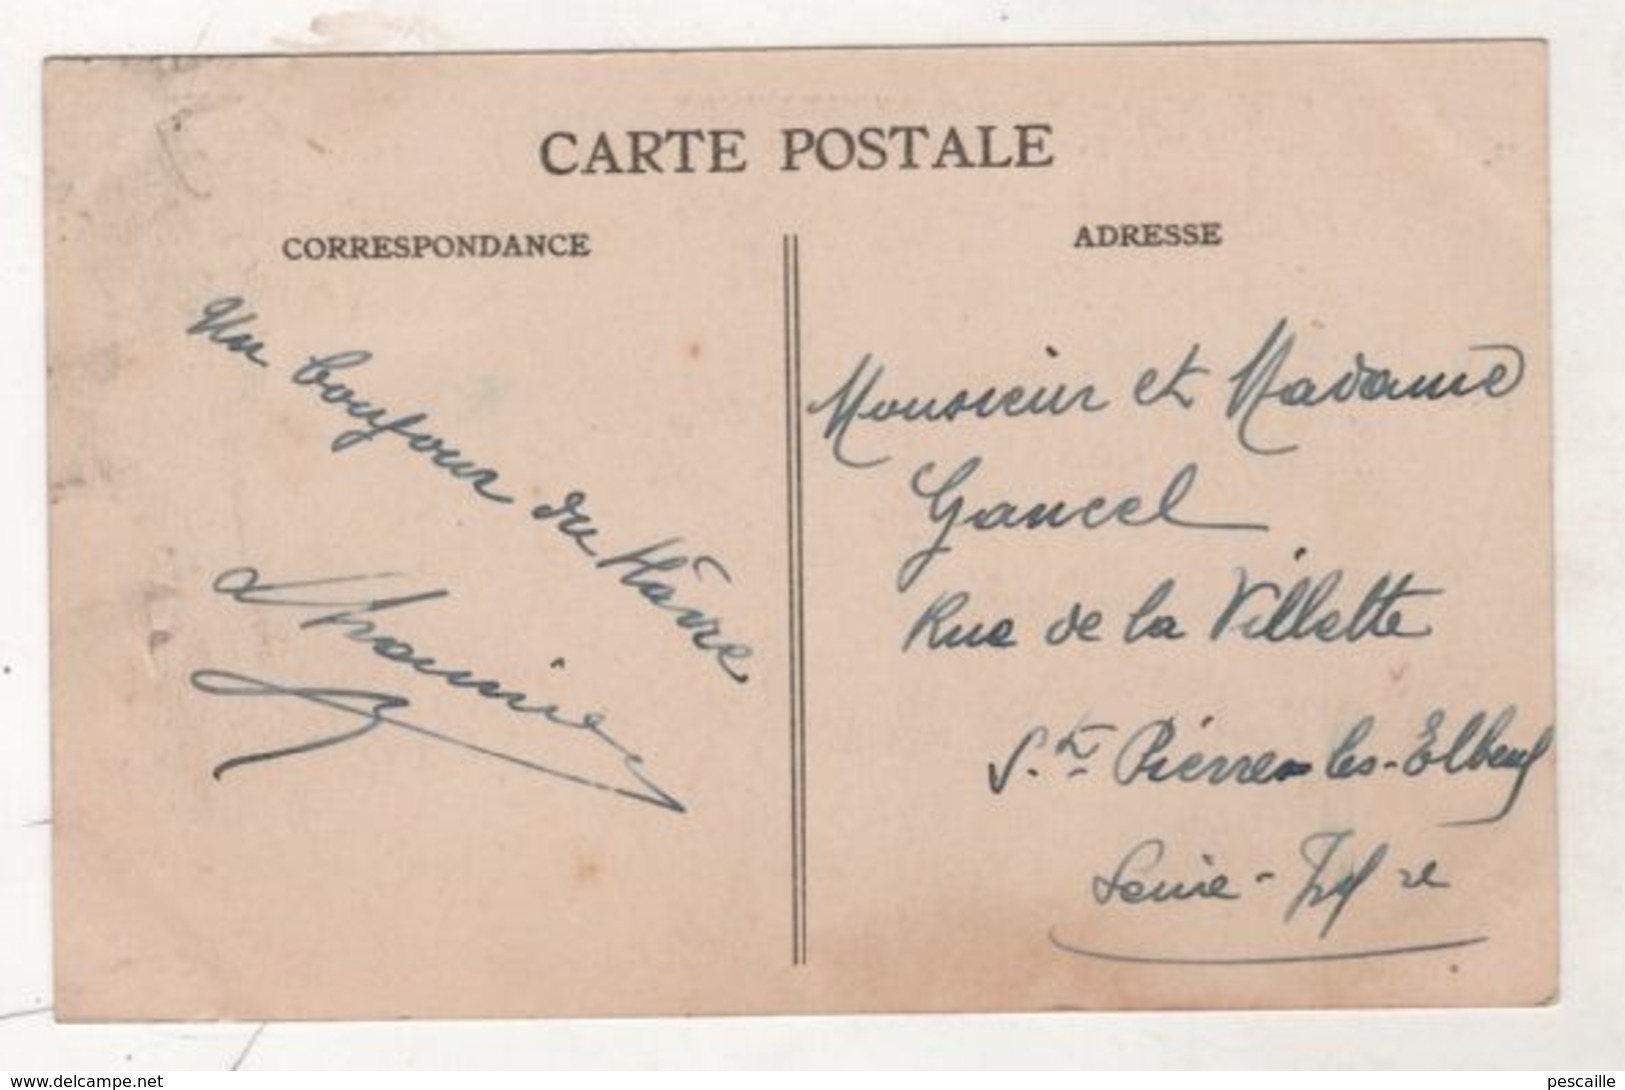 CARTE POSTALE
CORRESPONDANCE
Un bonjour du Hâvre
ADRESSE
Monsieur et Madame
Gancel
Rue de la Villette
St Pierre-les-Elbeuf
Seine-Infre
www.delcampe.net
pescaille